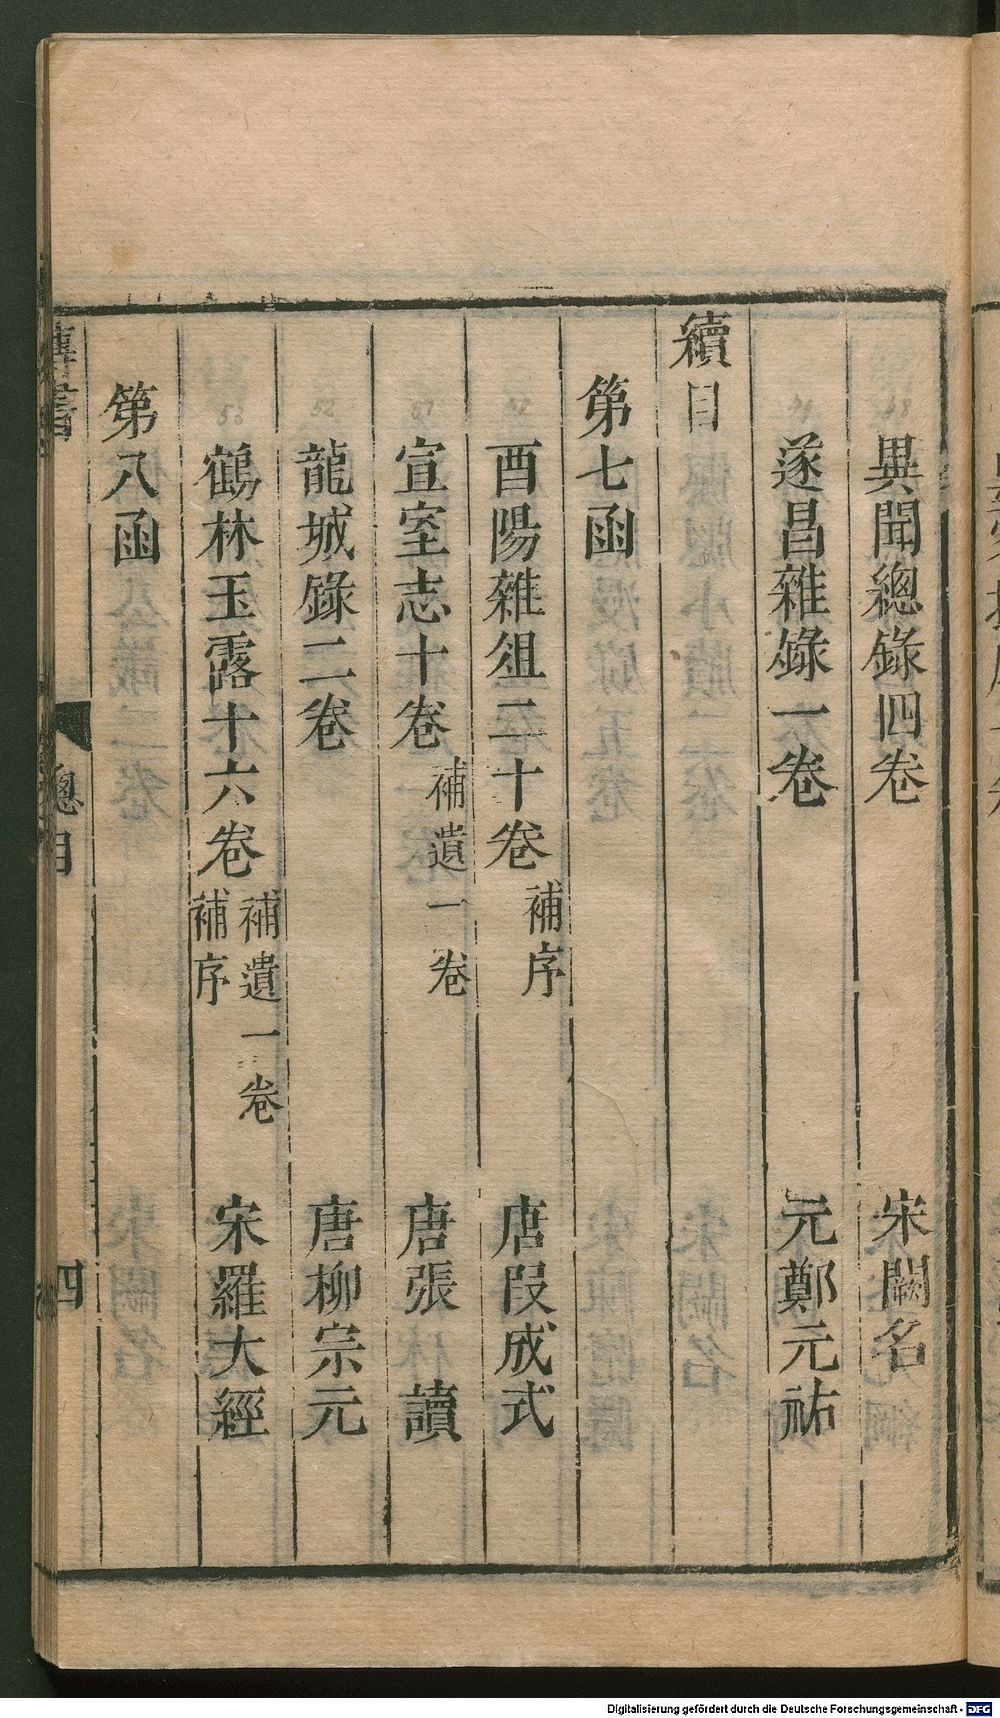 異聞總錄四卷　宋闕名
遂昌雜錄一卷　元鄭元祐
續目
第七函
酉陽雜俎二十卷　補序　唐段成式
宣室志十卷　補遺一卷　唐張　讀
龍城錄二卷　唐柳宗元
鶴林玉露十六卷　補遺一卷　補序　宋羅大經
第八函
總目　四
Digitalisierung gefördert durch die Deutsche Forschungsgemeinschaft - DFG